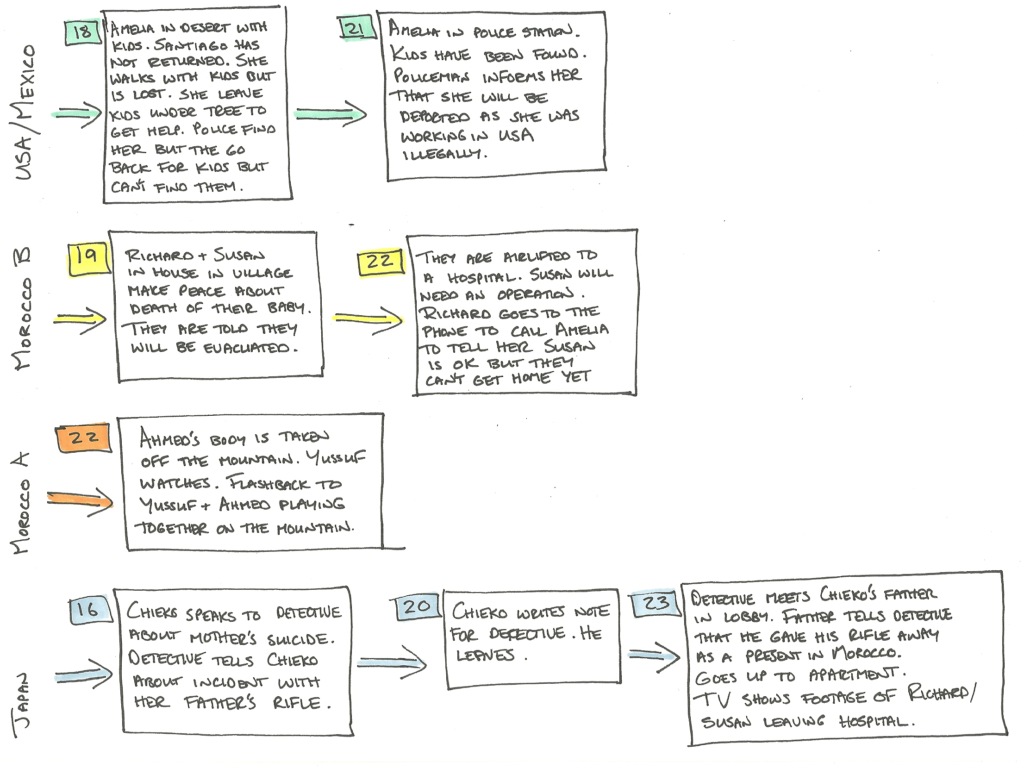 USA/MEXICO
18
AMELIA IN DESERT WITH
KIDS. SANTIAGO HAS
NOT RETURNED. SHE
WALKS WITH KIDS BUT
IS LOST. SHE LEAVE
KIDS UNDER TREE TO
GET HELP. POLICE FIND
HER BUT THE GO
BACK FOR KIDS BUT
CAN'T FIND THEM.
21
AMELIA IN POLICE STATION.
KIDS HAVE BEEN FOUND.
POLICEMAN INFORMS HER
THAT SHE WILL BE
DEPORTED AS SHE WAS
WORKING IN USA
ILLEGALLY.
MOROCCO B
19
RICHARD + SUSAN
IN HOUSE IN VILLAGE
MAKE PEACE ABOUT
DEATH OF THEIR BABY.
THEY ARE TOLD THEY
WILL BE EVACUATED.
22
THEY ARE AIRLIFTED TO
A HOSPITAL. SUSAN WILL
NEED AN OPERATION.
RICHARD GOES TO THE
PHONE TO CALL AMELIA
TO TELL HER SUSAN
IS OK BUT THEY
CAN'T GET HOME YET
MOROCCO A
22
AHMED'S BODY IS TAKEN
OFF THE MOUNTAIN. YUSSUF
WATCHES. FLASHBACK TO
YUSSUF + AHMED PLAYING
TOGETHER ON THE MOUNTAIN.
JAPAN
16
CHIEKO SPEAKS TO DETECTIVE
ABOUT MOTHER'S SUICIDE.
DETECTIVE TELLS CHIEKO
ABOUT INCIDENT WITH
HER FATHER'S RIFLE.
20
CHIEKO WRITES NOTE
FOR DETECTIVE. HE
LEAVES.
23
DETECTIVE MEETS CHIEKO'S FATHER
IN LOBBY. FATHER TELLS DETECTIVE
THAT HE GAVE HIS RIFLE AWAY
AS A PRESENT IN MOROCCO.
GOES UP TO APARTMENT.
TV SHOWS FOOTAGE OF RICHARD/
SUSAN LEAVING HOSPITAL.